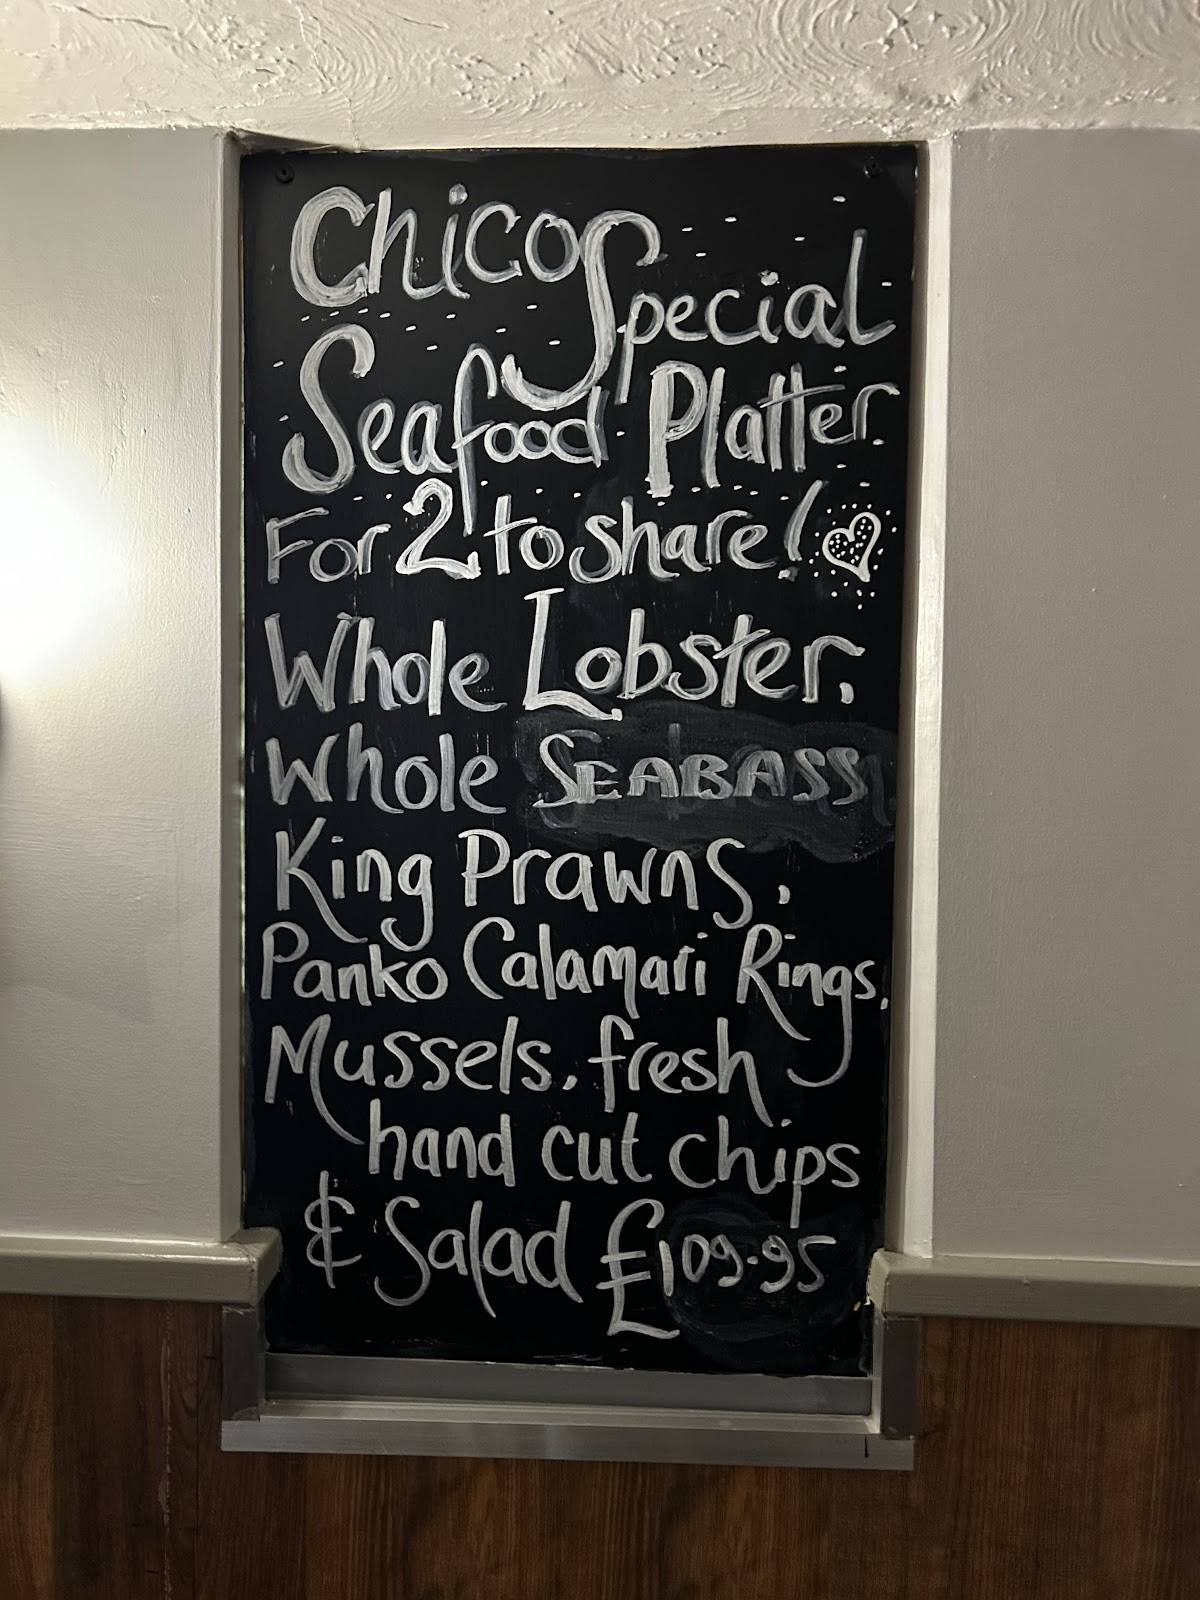 Chico Special
Seafood Platter
For 2 to share!
Whole Lobster,
Whole SEABASS
King Prawns,
Panko Calamari Rings,
Mussels, fresh
hand cut chips
& Salad £109.95